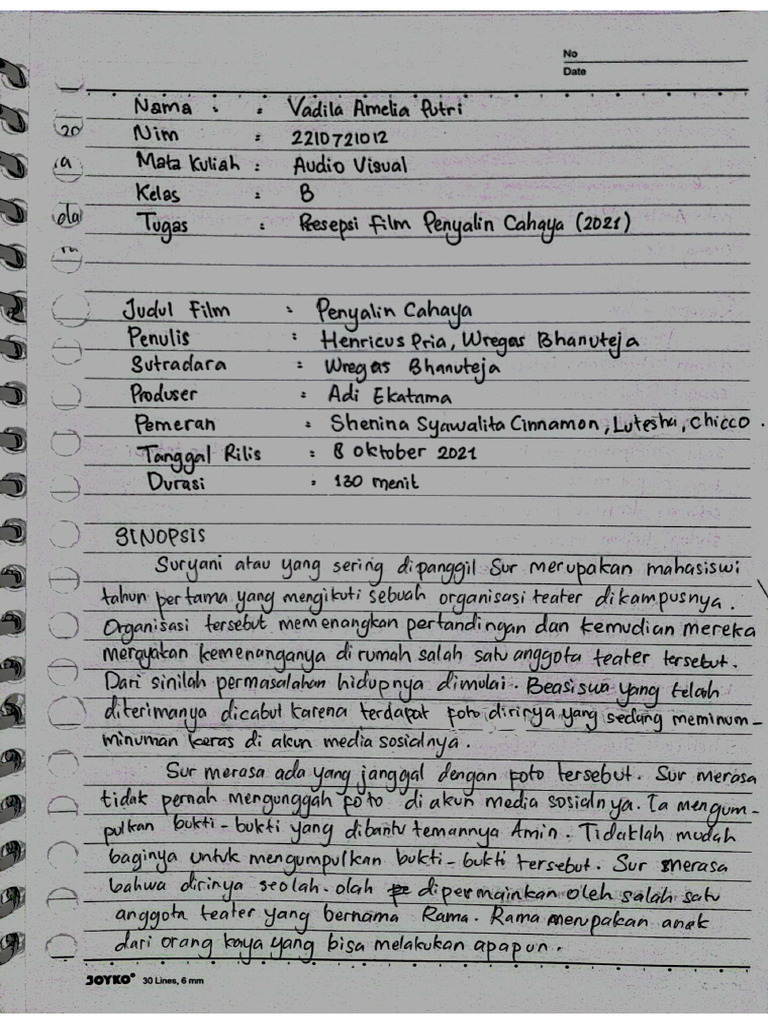 No
Date
Nama : : Vadila Amelia Putri
Nim : 2210721012
Mata Kuliah : Audio Visual
Kelas : B
Tugas : Resepsi Film Penyalin Cahaya (2021)
Judul Film : Penyalin Cahaya
Penulis : Henricus Pria, Wregas Bhanuteja
Sutradara : Wregas Bhanuteja
Produser : Adi Ekatama
Pemeran : Shenina Syawalita Cinnamon, Lutesha, Chicco .
Tanggal Rilis : 8 Oktober 2021
Durasi : 130 menit
SINOPSIS
Suryani atau yang sering dipanggil Sur merupakan mahasiswi
tahun pertama yang mengikuti sebuah organisasi teater dikampusnya.
Organisasi tersebut memenangkan pertandingan dan kemudian mereka
merayakan kemenanganya di rumah salah satu anggota teater tersebut.
Dari sinilah permasalahan hidupnya dimulai. Beasiswa yang telah
diterimanya dicabut karena terdapat foto dirinya yang sedang meminum-
minuman keras di akun media sosialnya.
Sur merasa ada yang janggal dengan foto tersebut. Sur merasa
tidak pernah mengunggah foto di akun media sosialnya. Ia mengum-
pulkan bukti-bukti yang dibantu temannya Amin. Tidaklah mudah
baginya untuk mengumpulkan bukti-bukti tersebut. Sur merasa
bahwa dirinya seolah-olah dipermainkan oleh salah satu
anggota teater yang bernama Rama. Rama merupakan anak
dari orang kaya yang bisa melakukan apapun.
JOYKO 30 Lines, 6 mm